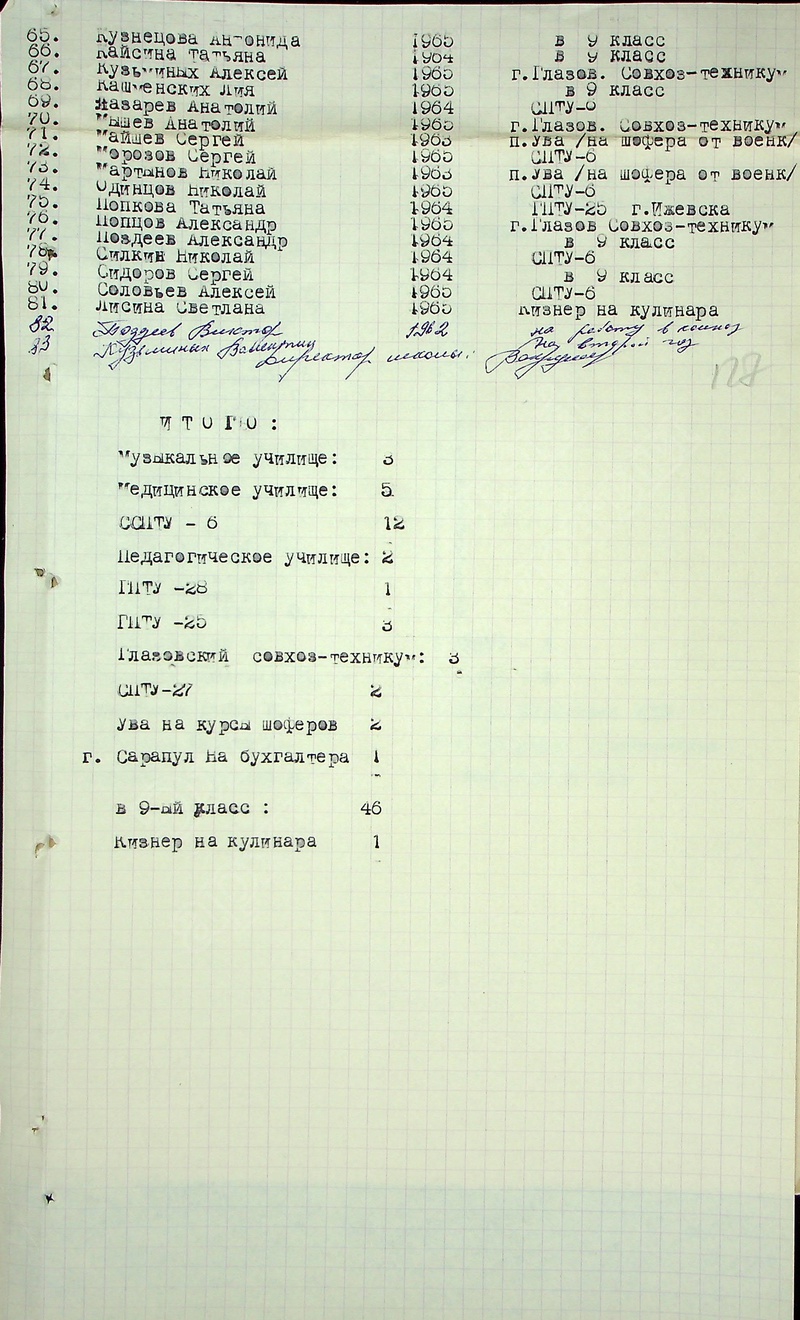 65. Кузнецова Антонида 1965 в 9 класс
66. Кайсина Татьяна 1964 в 9 класс
67. Кузьминых Алексей 1965 г.Глазов. Совхоз-техникум
68. Кашменских Лия 1965 в 9 класс
69. Назарев Анатолий 1964 СПТУ-6
70. Мышев Анатолий 1965 г.Глазов. Совхоз-техникум
71. Майшев Сергей 1963 п.Ува /на шофера от военк/
72. Морозов Сергей 1965 СПТУ-6
73. Мартынов Николай 1963 п.Ува /на шофера от военк/
74. Одинцов Николай 1965 СПТУ-6
75. Попкова Татьяна 1964 ГПТУ-25 г.Ижевска
76. Попцов Александр 1965 г.Глазов Совхоз-техникум
77. Поздеев Александр 1964 в 9 класс
78. Силкин Николай 1964 СПТУ-6
79. Сидоров Сергей 1964 в 9 класс
80. Соловьев Алексей 1965 СПТУ-6
81. Лисина Светлана 1965 Кизнер на кулинара
82 Поздеев Виктор 1962 на работу в колхоз
83 Кузьминых Валентин на второй год
директор школы:
128
И Т О Г О :
Музыкальное училище: 3
Медицинское училище: 5
ССПТУ - 6 12
Педагогическое училище: 2
ГПТУ -28 1
ГПТУ -25 3
Глазовский совхоз-техникум: 3
СПТУ-27 2
Ува на курсы шоферов 2
г. Сарапул на бухгалтера 1
в 9-ый класс : 46
Кизнер на кулинара 1